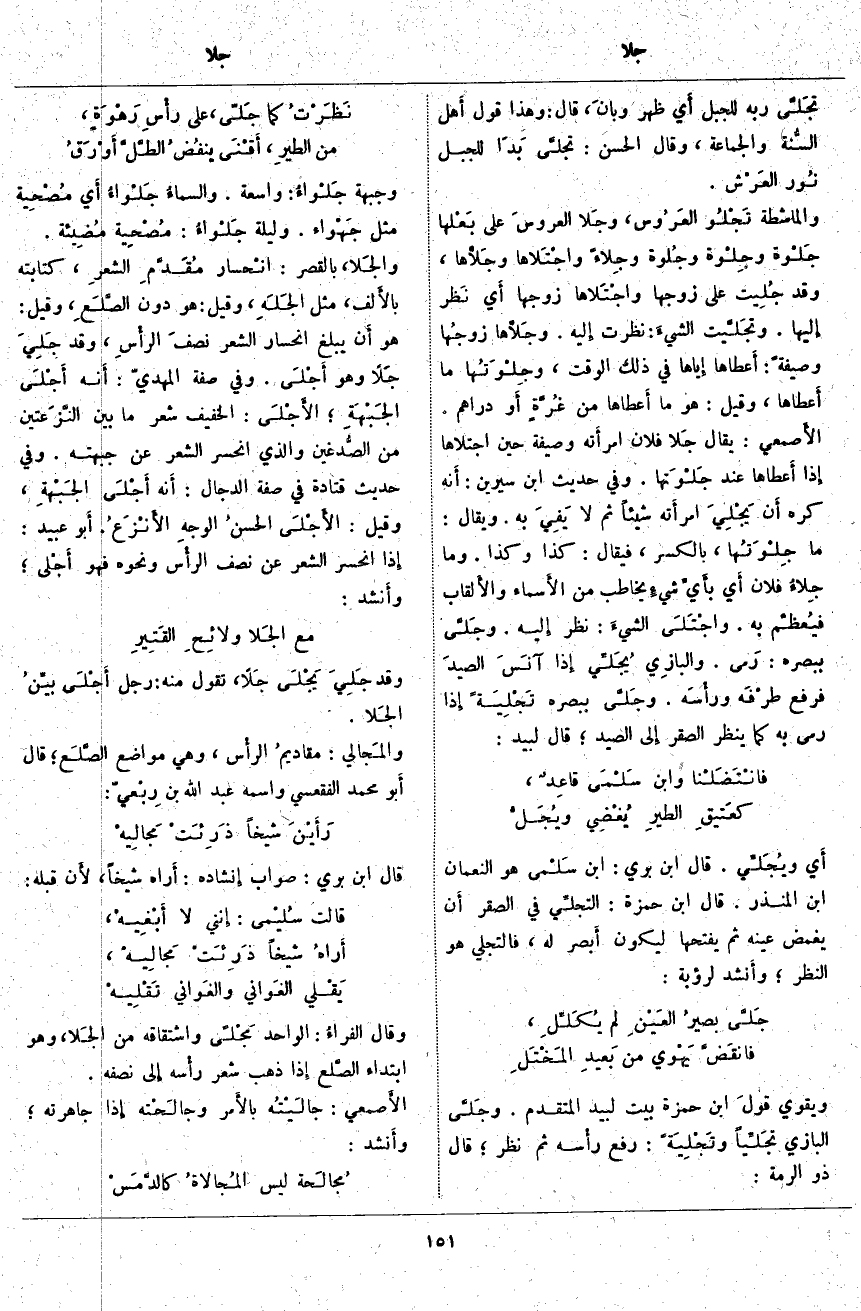 جلا
جلا
تجَلَّى ربه للجبل أي ظهر وبانَ، قال: وهذا قول أهل
السُّنة والجماعة، وقال الحسن: تجلَّى بَدَا للجبل
نُور العَرْش.
والماشطة تَجْلُو العَرُوس، وجَلا العروسَ على بَعْلها
جَلْوة وجِلْوة وجُلوة وجِلاءً واجْتَلاها وجَلَّاها،
وقد جُلِيت على زوجها واجْتَلاها زوجها أي نَظر
إليها. وتجَلَّيت الشيءَ: نظرت إليه. وجَلَّاها زوجُها
وصيفةً: أعطاها إياها في ذلك الوقت، وجِلْوَتُها ما
أعطاها، وقيل: هو ما أعطاها من غُرَّةٍ أو دراهم.
الأصمعي: يقال جَلا فلان امرأته وصيفة حين اجتلاها
إذا أعطاها عند جَلْوَتها. وفي حديث ابن سيرين: أنه
كره أن يَجْلِيَ امرأته شيئاً ثم لا يَفِيَ به. ويقال:
ما جِلْوَتُها، بالكسر، فيقال: كذا وكذا. وما
جِلاءُ فلان أي بأيّ شيءٍ يخاطب من الأسماء والألقاب
فيُعظَّم به. واجْتَلَى الشيءَ: نظر إليه. وجَلَّى
ببصره: رَمى. والبازي يُجَلِّي إذا آنَسَ الصيدَ
فرفع طرْفَه ورأسَه. وجَلَّى ببصره تَجْلِيَةً إذا
رمى به كما ينظر الصقر إلى الصيد؛ قال لبيد:
فانْتَضَلْنا وابن سَلْمَى قاعِدٌ،
كعَتيقِ الطيرِ يُغْضِي ويُجَلْ
أي ويُجَلِّي. قال ابن بري: ابن سَلْمى هو النعمان
ابن المنذر. قال ابن حمزة: التجلِّي في الصقر أن
يغمض عينه ثم يفتحها ليكون أبصر له، فالتجلي هو
النظر؛ وأنشد لرؤبة:
جَلَّى بصيرُ العَيْنِ لم يُكَلِّلِ،
فانقَضَّ يَهْوي من بَعيدِ المَخْتَلِ
ويقوي قولَ ابن حمزة بيت لبيد المتقدم. وجَلَّى
البازي تجَلِّياً وتَجْلِيَةً: رفع رأسه ثم نظر؛ قال
ذو الرمة:
نَظَرْتُ كما جَلَّى، على رأسِ رَهْوَةٍ،
من الطيرِ، أقْنَى ينفُضُ الطَّلَّ أَوْرَقُ
وجبهة جَلْواءُ: واسعة. والسماءُ جَلْواءُ أي مُصْحِية
مثل جَهْواء. وليلة جَلْواءُ: مُصْحِية مُضِيئة.
والجَلا، بالقصر: انْحسار مُقَدَّمِ الشعرِ، كتابته
بالألف، مثل الجَلَهِ، وقيل: هو دون الصَّلَعِ، وقيل:
هو أن يبلغ انحسار الشعر نصفَ الرأسِ، وقد جَلِيَ
جَلًا وهو أجْلَى. وفي صفة المهديّ: أنه أجْلَى
الجَبْهَةِ؛ الأَجْلَى: الخفيف شعر ما بين النَّزَعَتين
من الصُّدغين والذي انحسر الشعر عن جبهته. وفي
حديث قتادة في صفة الدجال: أنه أجْلَى الجَبْهةِ،
وقيل: الأَجْلَى الحسنُ الوجهِ الأَنْزَعُ. أبو عبيد:
إذا انحسر الشعر عن نصف الرأس ونحوه فهو أجْلى؛
وأنشد:
مع الجَلا ولائِحِ القَتِيرِ
وقد جَلِيَ يَجْلَى جَلًا، تقول منه: رجل أجْلَى بَيِّنُ
الجَلا.
والمَجالي: مقاديمُ الرأس، وهي مواضع الصَّلَع؛ قال
أبو محمد الفقعسي واسمه عبد الله بن رِبْعيّ:
رَأَيْنَ شيخاً ذَرِئَتْ مَجالِيهْ
قال ابن بري: صواب إنشاده: أراه شيخاً، لأن قبله:
قالت سُلَيْمى: إنني لا أَبْغِيهْ،
أراهُ شيخاً ذَرِئَتْ مَجالِيهْ،
يَقْلي الغَواني والغَواني تَقْلِيهْ
وقال الفراءُ: الواحد مَجْلَى واشتقاقه من الجَلا، وهو
ابتداء الصَّلَع إذا ذهب شعر رأسه إلى نصفه.
الأصمعي: جالَيْتُه بالأمر وجالَحْته إذا جاهرته؛
وأنشد:
مُجالَحة ليس المُجالاةُ كالدَّمَسْ
١٥١